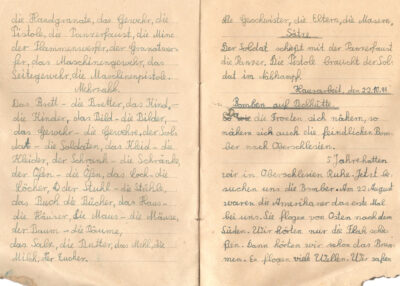 die Handgranate, das Gewehr, die
Pistole, die Panzerfaust, die Mine
der Flammenwerfer, der Granatwer-
fer, das Maschinengewehr, das
Seitegewehr, die Maschinenpistole.
Mehrzahl.
Das Brett - die Bretter, das Kind,
die Kinder, das Bild - die Bilder,
das Gewehr - die Gewehre, der Sol-
dat - die Soldaten, das Kleid - die
Kleider, der Schrank - die Schränke,
der Ofen - die Öfen, das Loch - die
Löcher, der Stuhl - die Stühle,
das Buch die Bücher, das Haus -
die Häuser, die Maus - die Mäuse,
der Baum - die Bäume,
das Salz, die Butter, das Mehl, die
Milch, der Zucker.
die Geschwister, die Eltern, die Masern,
Sätze
Der Soldat schießt mit der Panzerfaust
die Panzer. Die Pistole braucht der Sol-
dat im Nahkampf.
Hausarbeit, den 22.10.44
Bomben auf
die Fronten sich nähern, so
nähern sich auch die feindlichen Bom-
ber nach Oberschlesien.
5 Jahre hatten
wir in Oberschlesien Ruhe. Jetzt be-
suchen uns die Bomber. Am 22 August
waren die Amerika ner das erste Mal
bei uns. Sie flogen von Osten nach dem
Süden. Wir hörten nur die Flak schie-
ßen. Dann hörten wir schon das Brum-
men. Es flogen viele Wellen. Wir saßen